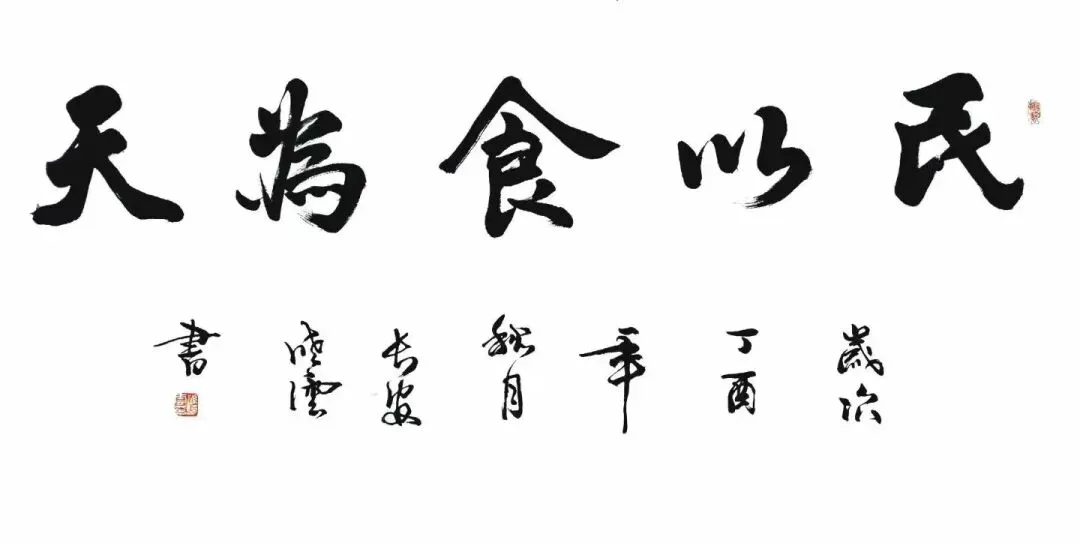 民以食為天
歲次
丁酉
年
秋月
長安
雲
書